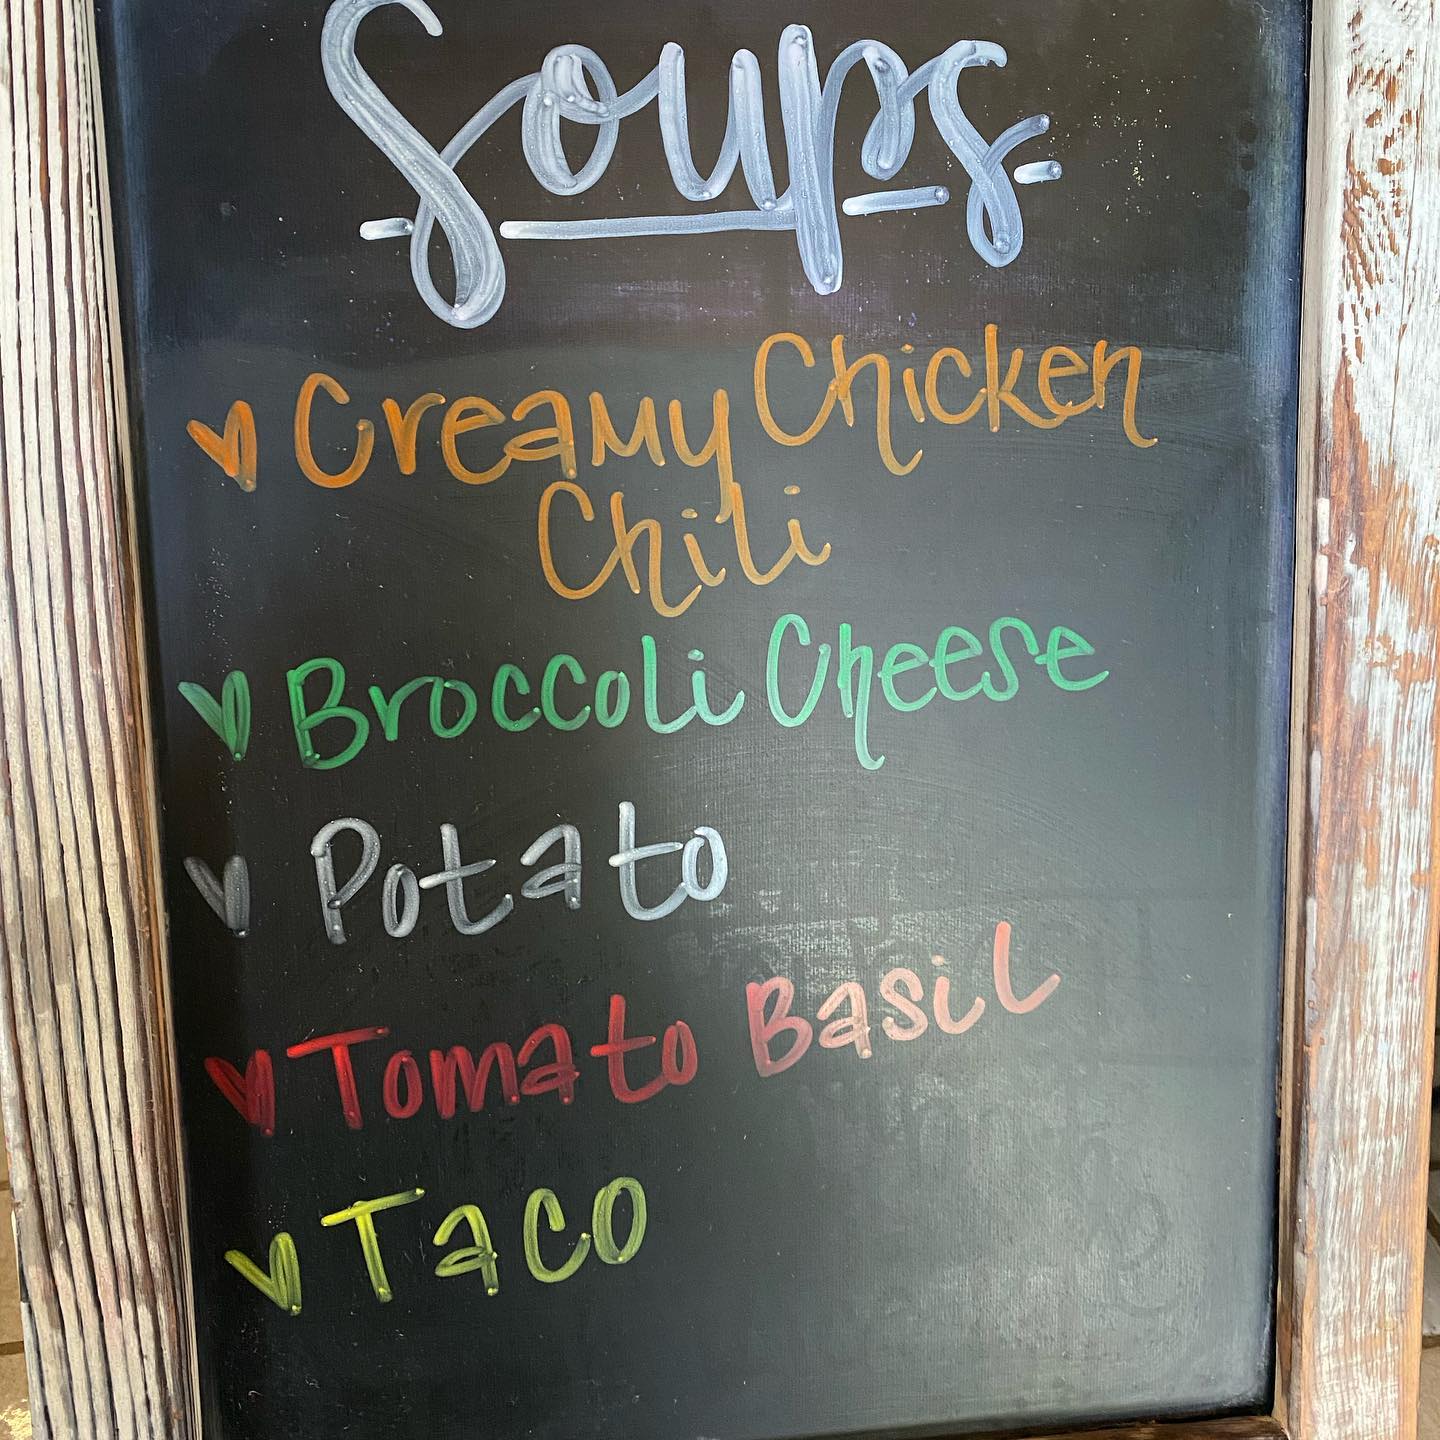 Soups
Creamy Chicken
Chili
Broccoli Cheese
Potato
Tomato Basil
Taco